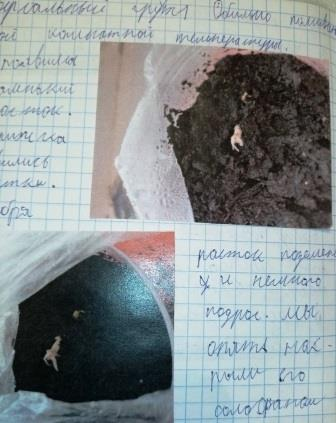 версальный грунт Обильно полили
ой комнатной температуры.
появился
енький
осток.
ились
тки.
бря
росток позелен
у и немного
подрос. Мы
опять нак-
рыли его
целофаном